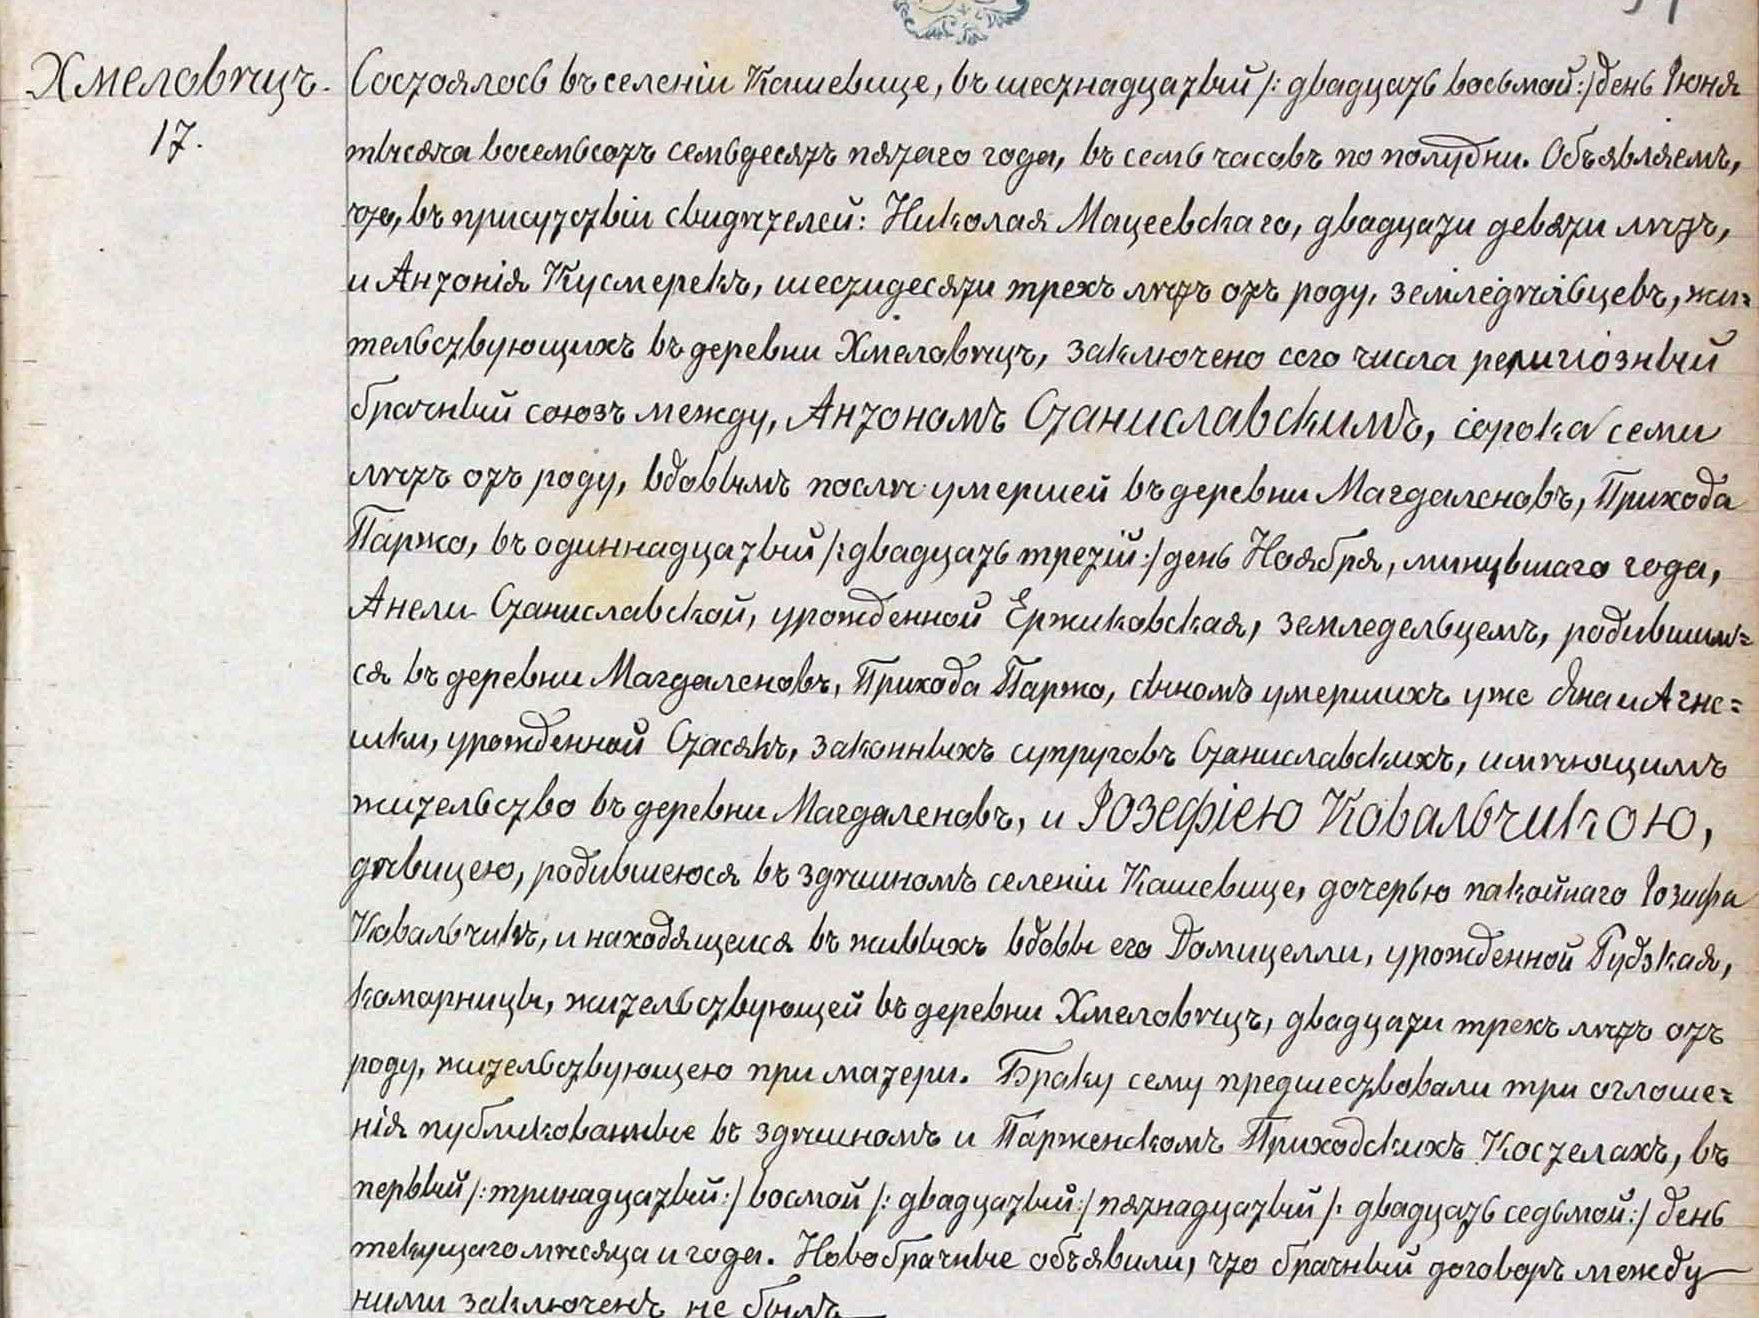 Хмеловѣцъ.
17.
Состоялось въ селеніи Кашевице, въ шестнадцатый /: двадцать восьмой :/ день Іюня
тысяча восемьсотъ семьдесятъ пятаго года, въ семь часовъ по полудни. Объявляемъ,
что, въ присутствіи свидѣтелей: Николая Мацеевскаго, двадцати девяти лѣтъ,
и Антонія Кусмерекъ, шестидесяти трехъ лѣтъ отъ роду, земледѣльцевъ, жи=
тельствующихъ въ деревни Хмеловѣцъ, заключено сего числа религіозный
брачный союзъ между, Антономъ Станиславскимъ, сорока семи
лѣтъ отъ роду, вдовымъ послѣ умершей въ деревни Магдаленовъ, Прихода
Паржо, въ одиннадцатый /: двадцать третій :/ день Ноября, минувшаго года,
Анели Станиславской, урожденной Ержиковская, земледельцемъ, родившим=
ся въ деревни Магдаленовъ, Прихода Паржо, сыномъ умершихъ уже Яна и Агне=
шки, урожденной Стасякъ, законныхъ супруговъ Станиславскихъ, имѣющимъ
жительство въ деревни Магдаленовъ, и Іозефіею Ковальчикою,
дѣвицею, родившеюся въ здѣшномъ селеніи Кашевице, дочерью покойнаго Іозифа
Ковальчикъ, и находящейся въ живыхъ вдовы его Домицелли, урожденной Рудзкая,
коморницы, жительствующей въ деревни Хмеловѣцъ, двадцати трехъ лѣтъ отъ
роду, жительствующею при матери. Браку сему предшествовали три оглоше=
нія публикованные въ здѣшномъ и Парженскомъ Приходскихъ Костелахъ, въ
первый /: тринадцатый :/ восмой /: двадцатый :/ пятнадцатый /: двадцать седьмой :/ день
текущаго мѣсяца и года. Новобрачные объявили, что брачный договоръ между
ними заключенъ не былъ